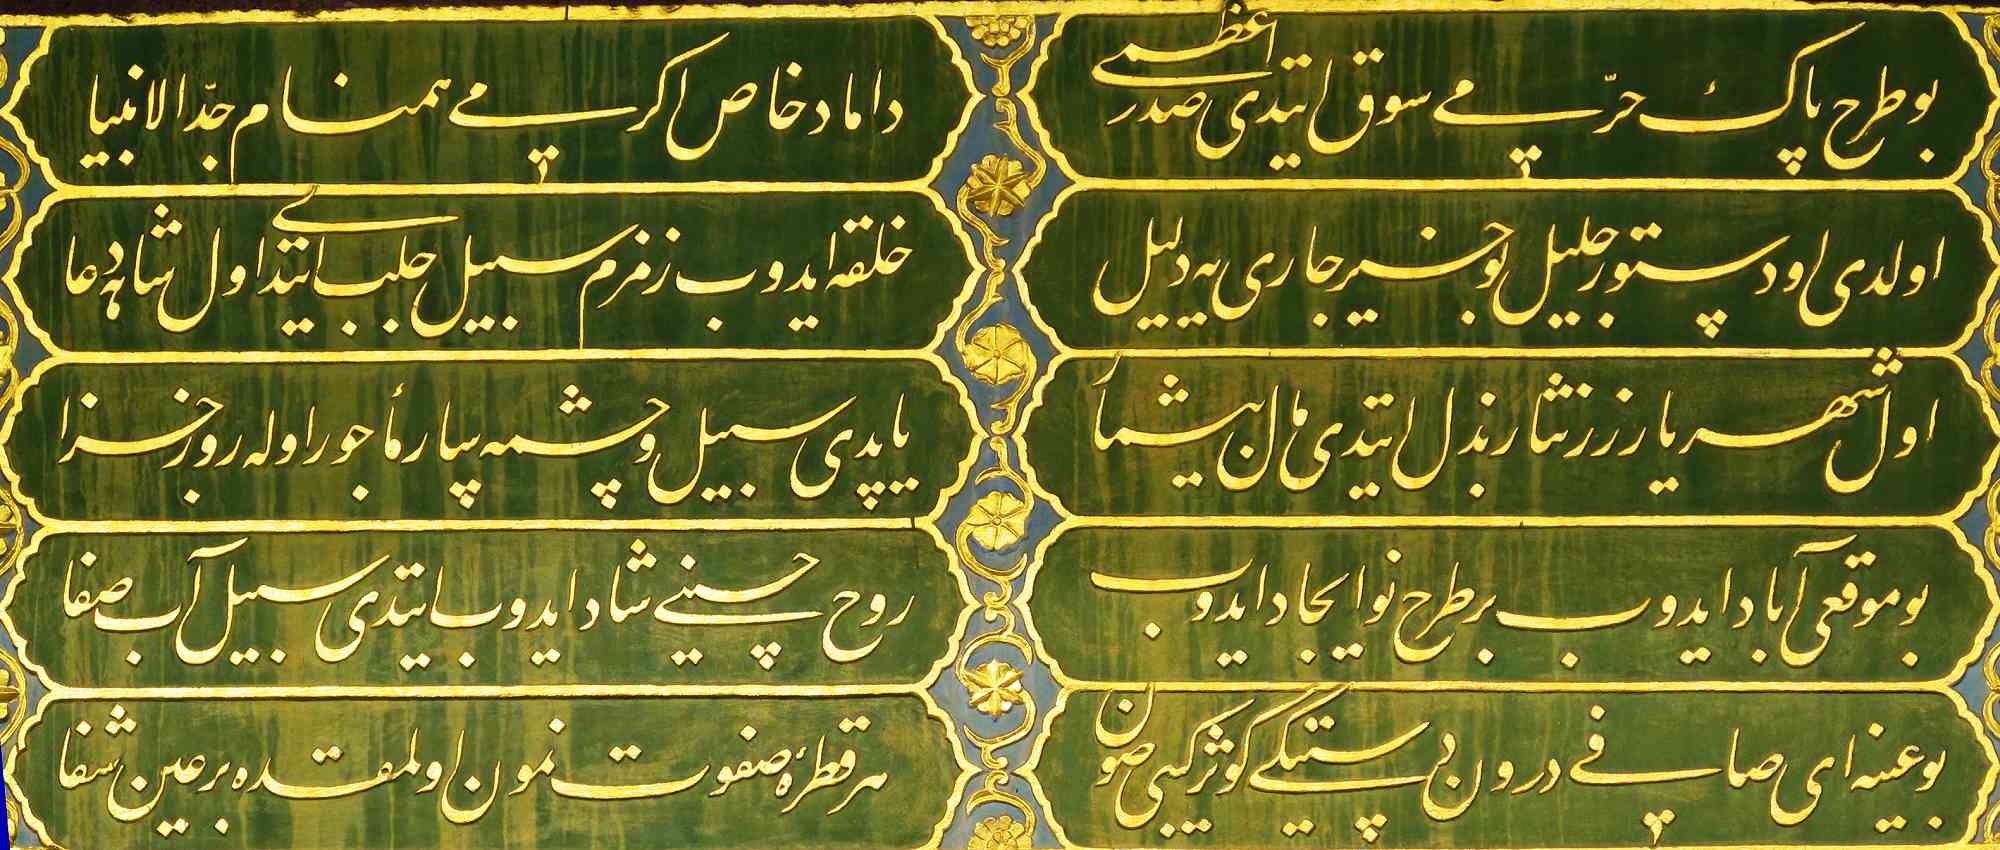 بو طرح پاك خرّمی سوق ایتدی صدر اعظمی
داماد خاص اكرمی همنام جدّ الانبیا
اولدی او دستور جلیل بو خیر جاری یه دلیل
خلقه ایدوب زمزم سبیل جلب ایتدی اول شاهه دعا
اول شهریار زر نثار بذل ایتدی مال بیشمار
یاپدی سبیل و چشمه سار مأجور اوله روز جزا
بو موقعی آباد ایدوب بر طرح نو ایجاد ایدوب
روح حسینی شاد ایدوب ایتدی سبیل آب صفا
بو عینه ای صافی درون دستكی كوثر كبی صون
هر قطرهٔ صفوت نمون اولمقده بر عین شفا